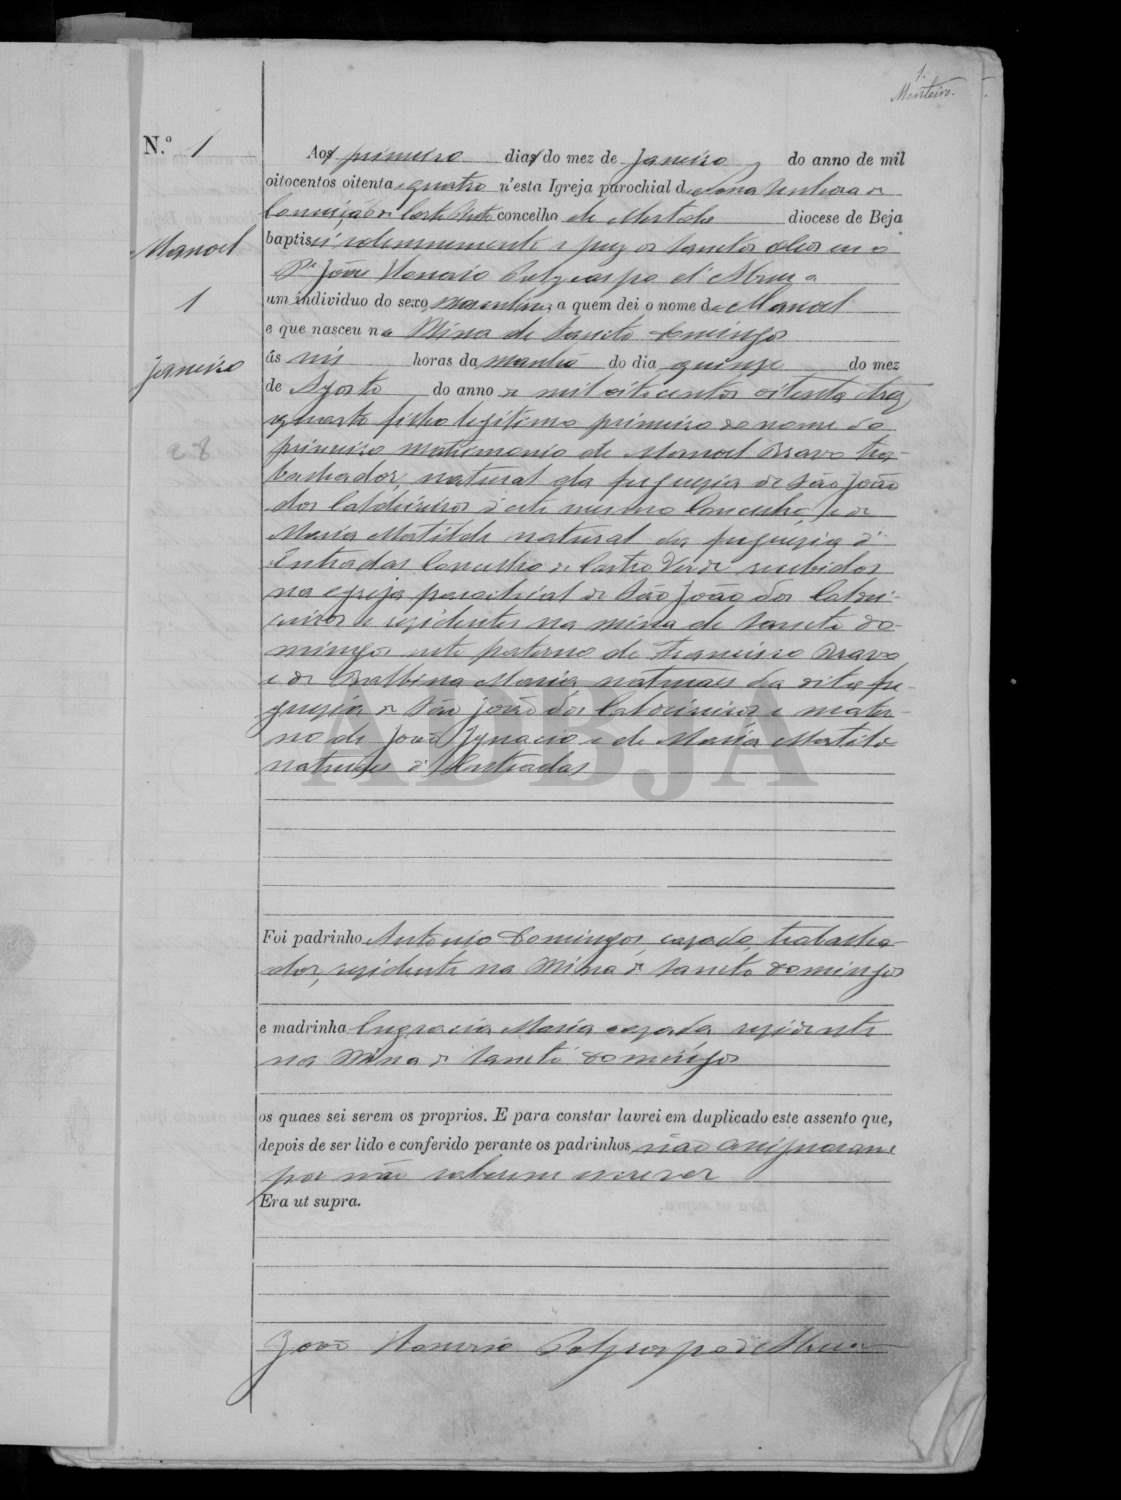 1.
Monteiro.
N.º 1
Manoel
1
Janeiro
Aos primeiro dias do mez de Janeiro, do anno de mil
oitocentos oitenta e quatro n'esta Igreja parochial de Nossa Senhora da
Conceição de Corte do Pinto concelho de Mertola diocese de Beja
baptisei solemnemente e puz os Sanctos oleos eu o
P.e João Honorio Polycarpo d'Abreu a
um individuo do sexo masculino, a quem dei o nome de Manoel
e que nasceu na Mina de Sancto Domingos
ás seis horas da manhã do dia quinze do mez
de Agosto do anno de mil oitocentos oitenta e trez
quarto filho legitimo primeiro do nome do
primeiro matrimonio de Manoel Bravo tra-
balhador, natural da freguezia de São João
dos Caldeireiros d'este mesmo Concelho, e de
Maria Matilde natural da freguezia d'
Entradas Concelho de Castro Verde recebidos
na egreja parochial de São João dos Caldei-
reiros e residentes na mina de Sancto Do-
mingos neto paterno de Francisco Bravo
e de Balbina Maria naturaes da dita fre-
guezia de São João dos Caldeireiros e mater-
no de João Ignacio e de Maria Matilde
naturaes d'Entradas
Foi padrinho Antonio Domingos, cazado, trabalha-
dor, residente na Mina de Sancto Domingos
e madrinha Engracia Maria cazada residente
na Mina de Sancto Domingos
os quaes sei serem os proprios. E para constar lavrei em duplicado este assento que,
depois de ser lido e conferido perante os padrinhos não assignaram
por não saberem escrever
Era ut supra.
João Honorio Polycarpo d'Abreu
ADBJA